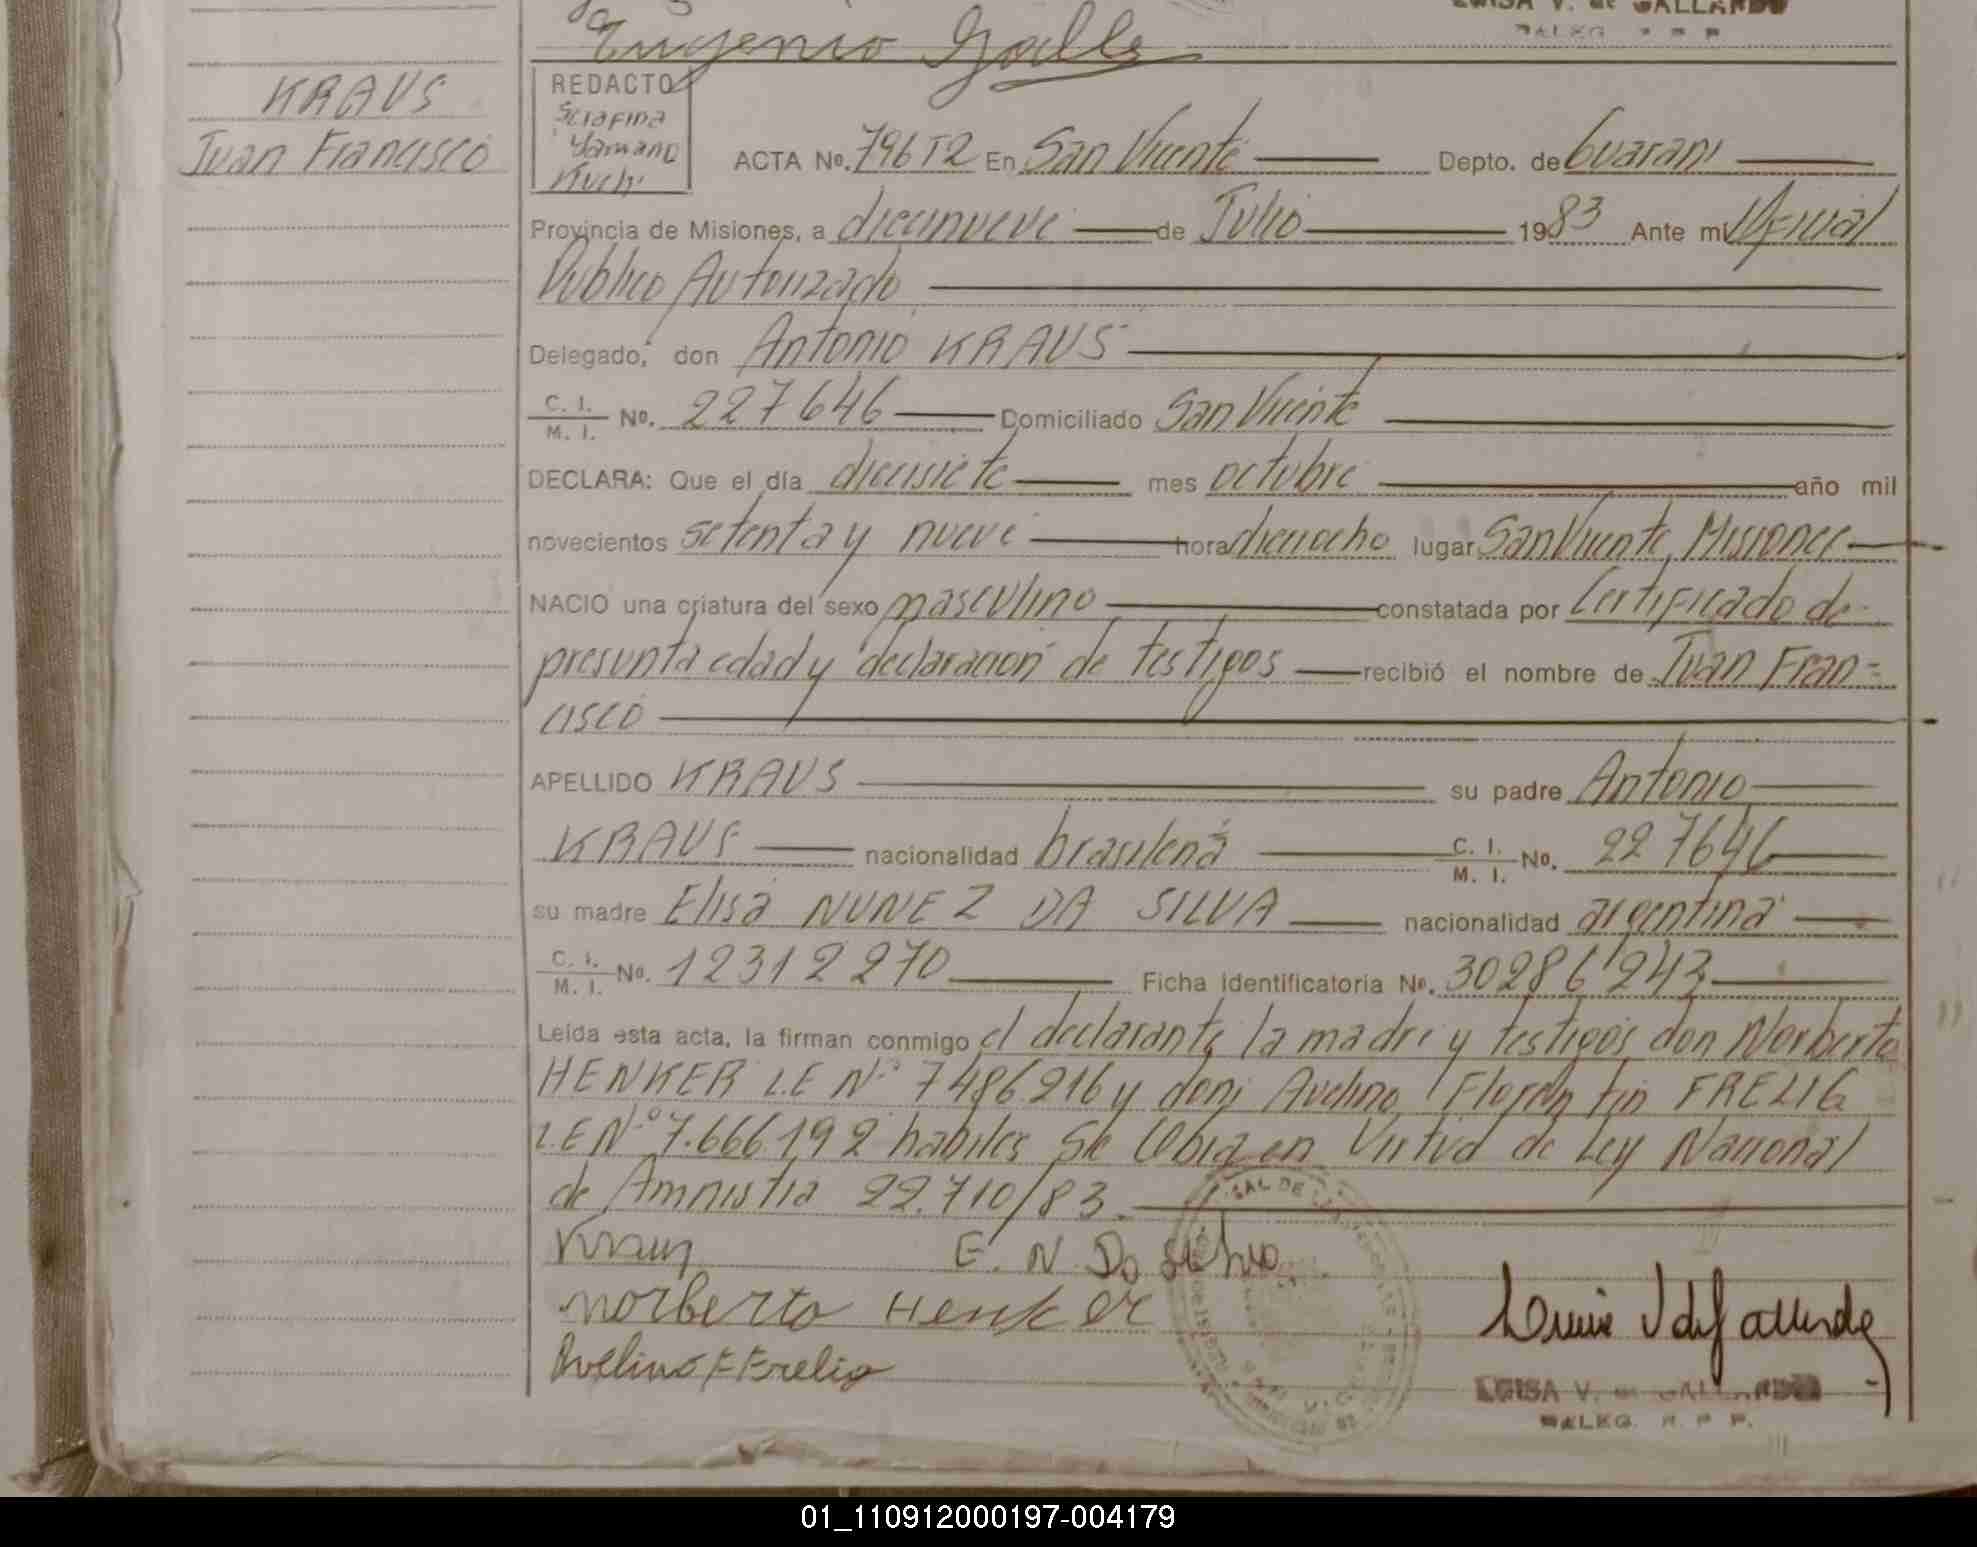 LUISA V. de GALLARDO
Eugenio Galle
KRAUS
Juan Francisco
REDACTO
Serafina
Yamano
Kuchi
ACTA No. 796 T2 En San Vicente Depto. de Guarani
Provincia de Misiones, a diecinueve de Julio 1983 Ante mi Oficial
Publico Autorizado
Delegado, don Antonio KRAUS
C. I. / M. I. No. 227646 Domiciliado San Vicente
DECLARA: Que el día diecisiete mes octubre año mil
novecientos setenta y nueve hora dieciocho lugar San Vicente, Misiones
NACIO una criatura del sexo masculino constatada por Certificado de
presunta edad y declaracion de testigos recibió el nombre de Juan Fran-
cisco
APELLIDO KRAUS su padre Antonio
KRAUS nacionalidad brasilena C. I. / M. I. No. 227646
su madre Elisa NUNEZ DA SILVA nacionalidad argentina
C. I. / M. I. No. 12312270 Ficha Identificatoria No. 30286243
Leída esta acta, la firman conmigo el declarante, la madre y testigos don Norberto
HENKER L.E Nº 7486216 y don Avelino Florentin FRELIG
L.E Nº 7.666.192 habiles Se Obra en Virtud de Ley Nacional
de Amnistia 22.710/83.
Kraus E. N Da Silva
Norberto Henker
Avelino F Frelig
LUISA V. de GALLARDO
01_110912000197-004179